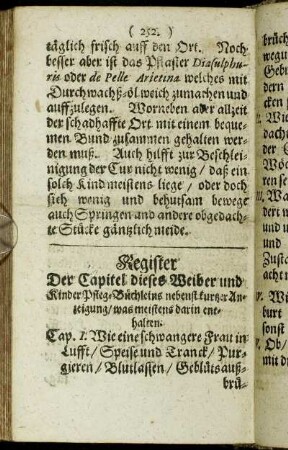 ( 252. )
täglich frisch auff den Ort. Noch
besser aber ist das Pflaster Diasulphu-
ris oder de Pelle Arietina welches mit
Durchwachß-öl weich zumachen und
auffzulegen. Worneben aber allzeit
der schadhaffte Ort mit einem beque-
men Bund zusammen gehalten wer-
den muß. Auch hilfft zur Beschlei-
nigung der Cur nicht wenig / daß ein
solch Kind meistens liege / oder doch
sich wenig und behutsam bewege
auch Springen und andere obgedach-
te Stücke gäntzlich meide.
Register
Der Capitel dieses Weiber und
Kinder Pfleg-Büchleins nebenst kurtzer An-
zeigung / was meistens darin ent-
halten.
Cap. I. Wie eine schwangere Frau in
Lufft / Speise und Tranck / Pur-
gieren / Blutlassen / Geblüts auß-
brü-
brüch
wegu
Gebu
dern
cken
Wie
dacht
Wöc
ren se
und
Zusta
acht
burt
sonst
Ob /
mit d